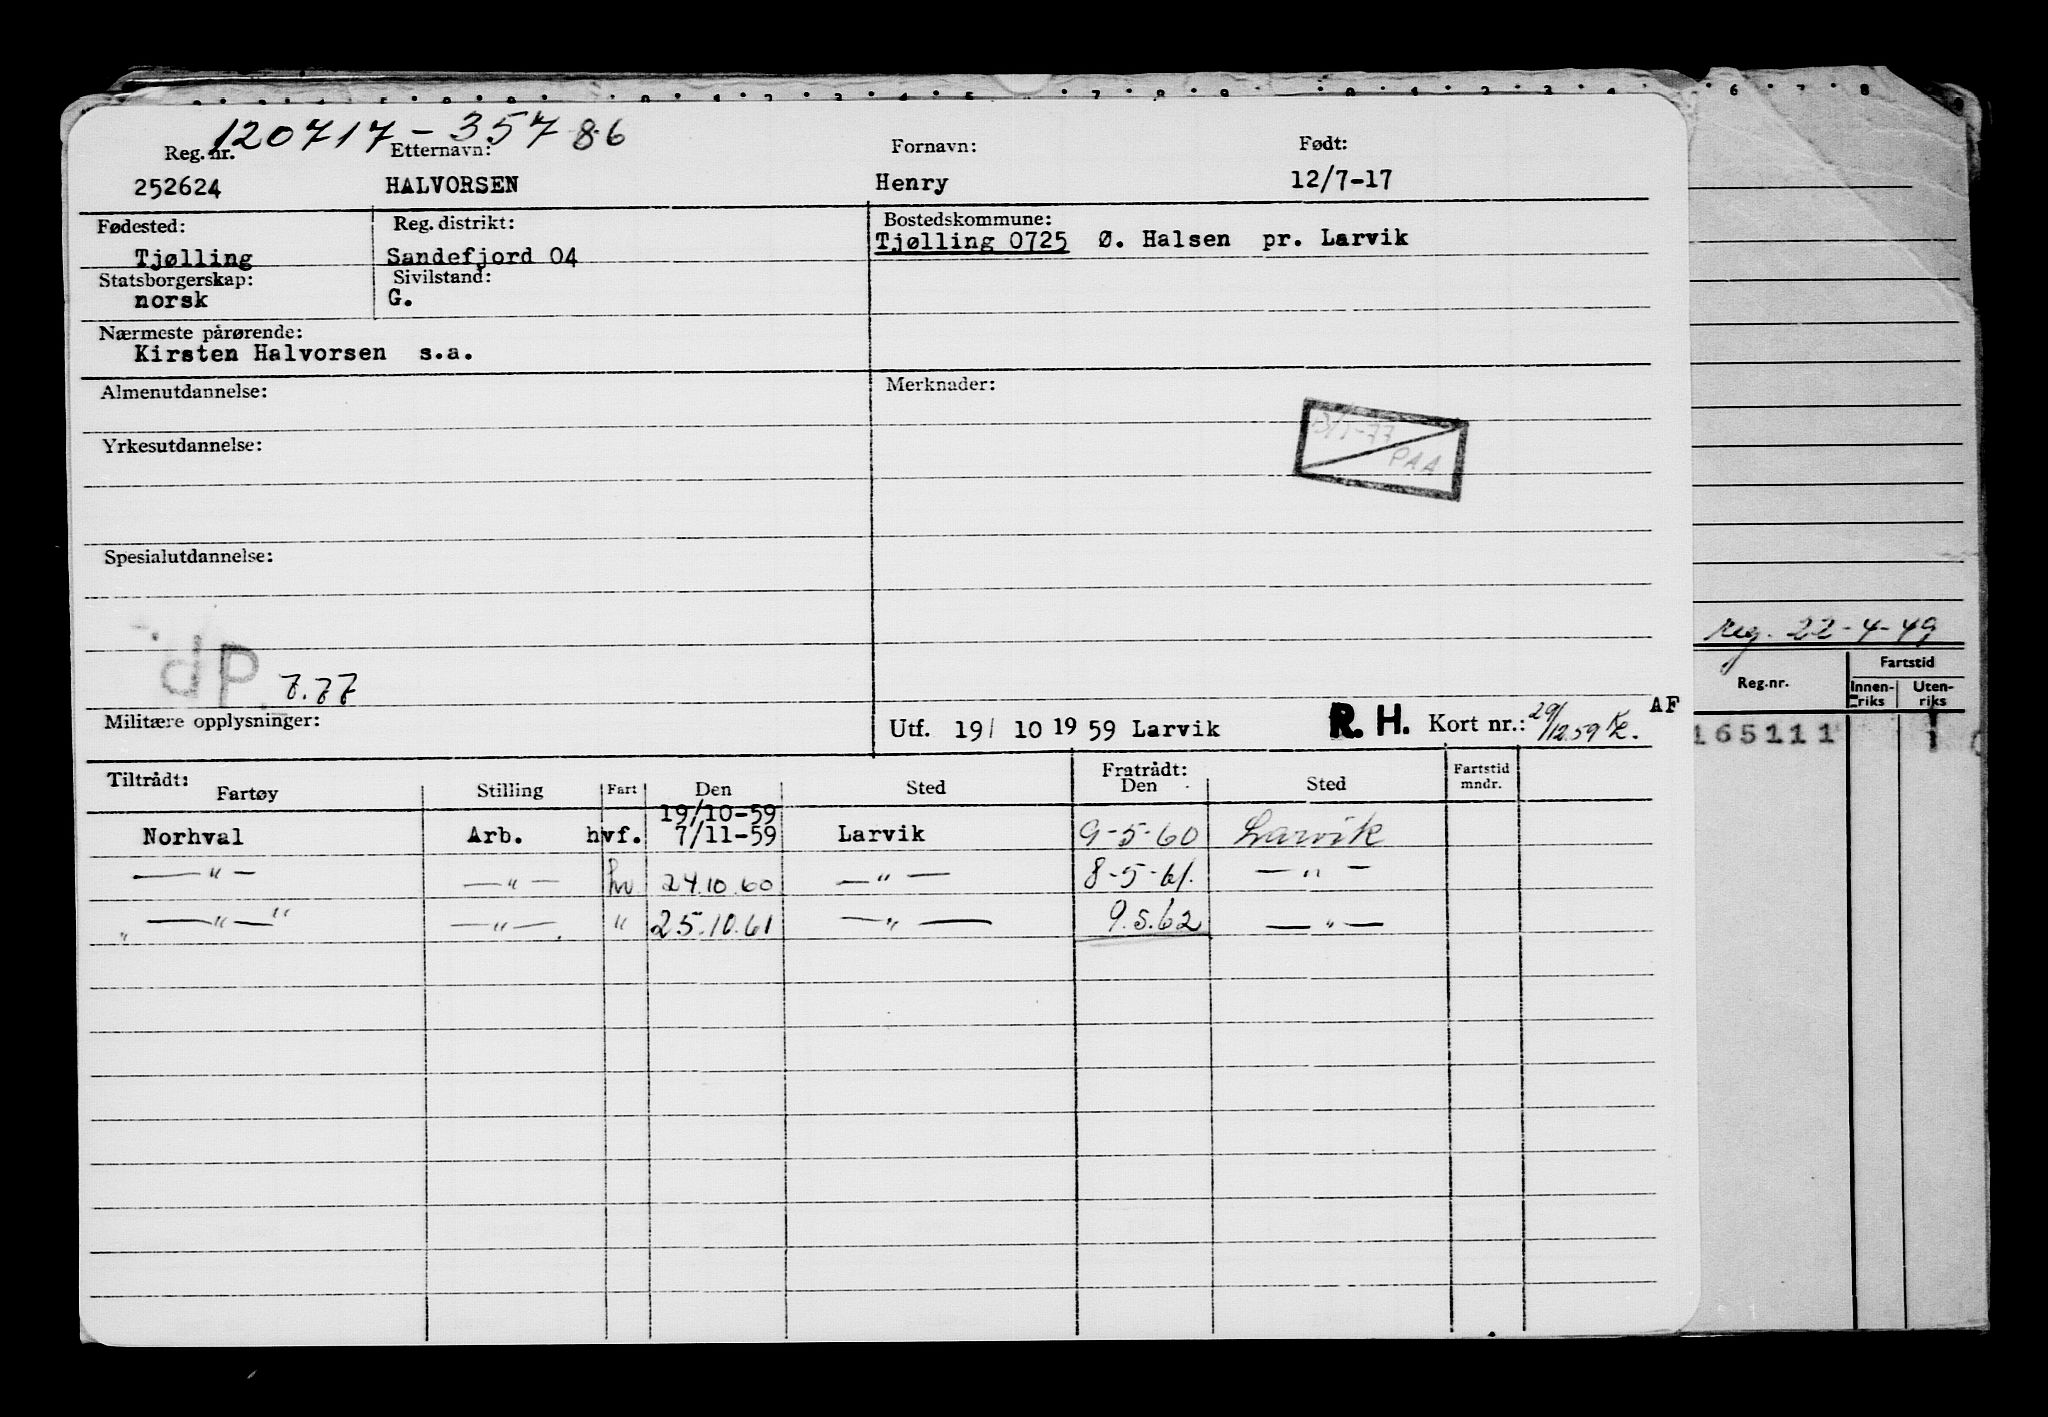 120717-35786
Reg. nr. Etternavn: Fornavn: Født:
252624 HALVORSEN Henry 12/7-17
Fødested: Reg. distrikt: Bostedskommune:
Tjølling Sandefjord 04 Tjølling 0725 Ø. Halsen pr. Larvik
Statsborgerskap: Sivilstand:
norsk G.
Nærmeste pårørende:
Kirsten Halvorsen s.a.
Almenutdannelse: Merknader:
13/1-77
PAA
Yrkesutdannelse:
Spesialutdannelse:
dP 7.77
reg. 22-4-49
Fartstid
Reg.nr. Innen-riks Uten-riks
165111 1
Militære opplysninger: Utf. 19/ 10 19 59 Larvik R. H. Kort nr.: 29/12 59 AF
Tiltrådt: Fratrådt:
Fartøy Stilling Fart Den Sted Den Sted Fartstid mndr.
19/10-59
Norhval Arb. hvf. 7/11-59 Larvik 9-5-60 Larvik
—"— —"— hv 24.10.60 —"— 8-5-61. —"—
„ —"—" —"—. " 25.10.61 —"— 9.5.62 —"—